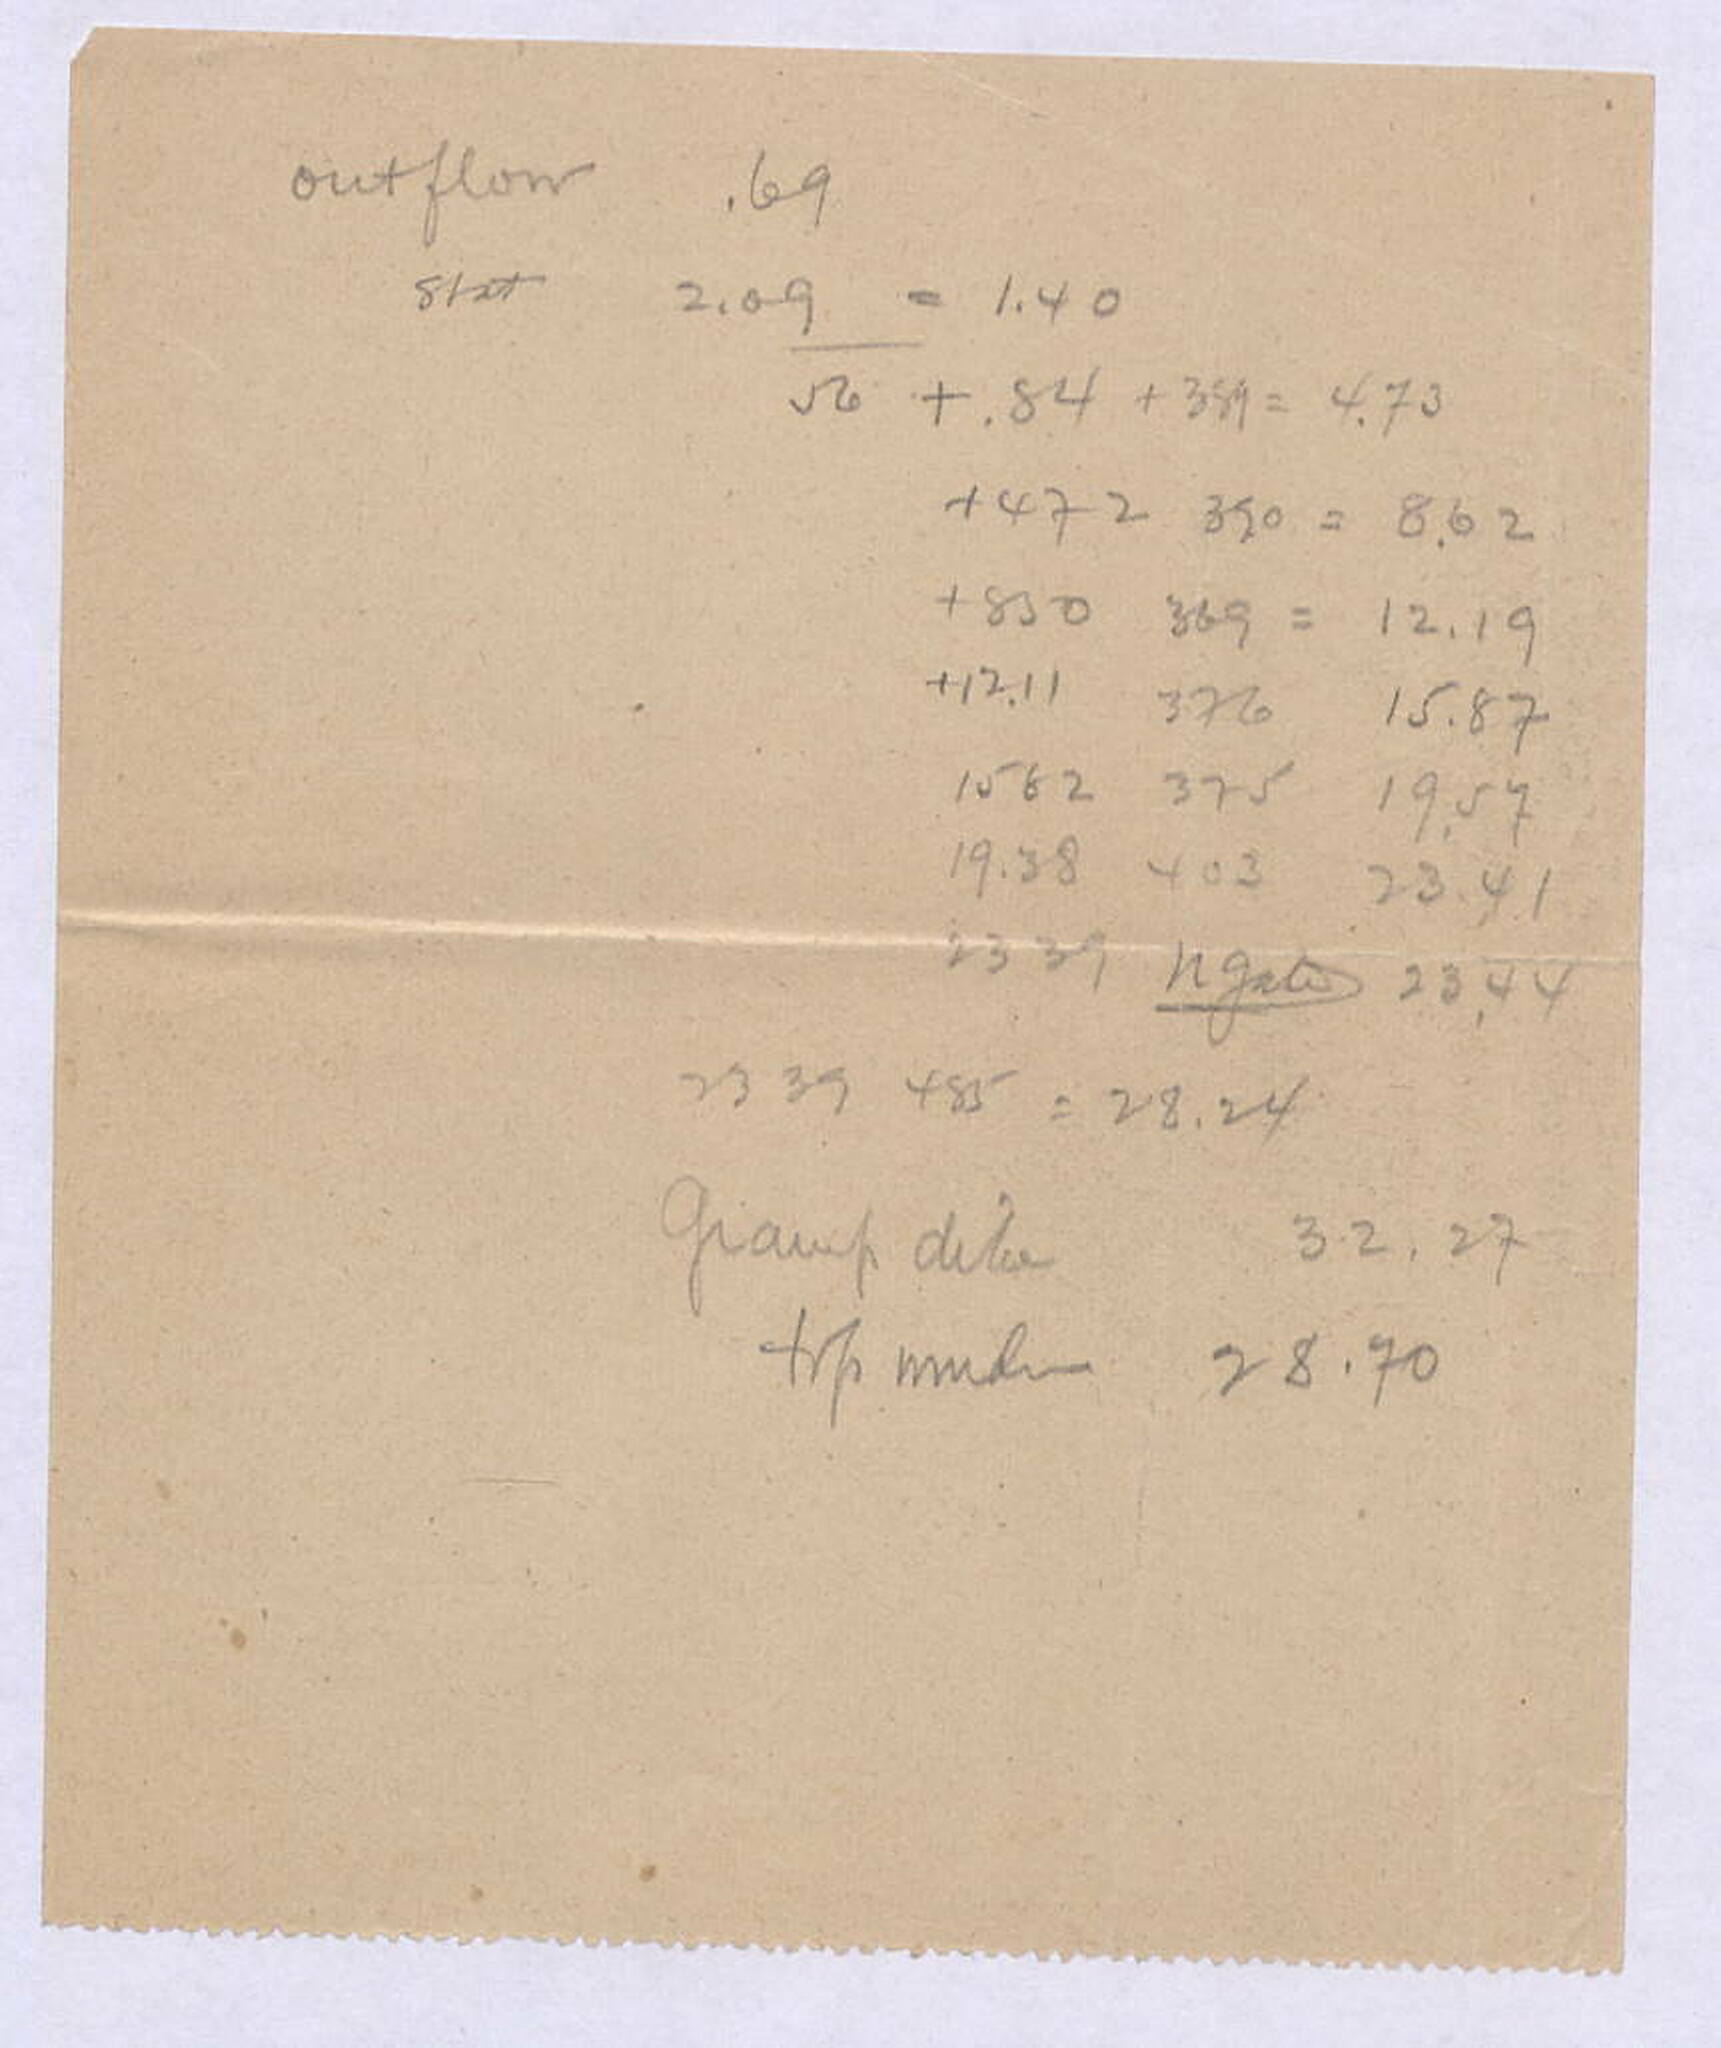 outflow .69
2.09 = 1.40
.56 + .84 + 389 = 4.73
+472 390 = 8.62
+850 369 = 12.19
+12.11 376 15.87
1582 375 19.57
19.38 403 23.41
2339 n gate 23.44
2339 485 = 28.24
dike 32.27
top 28.70